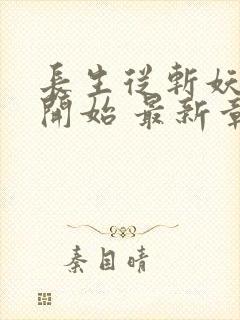 長生從斬妖
開始 最新章
秦目晴